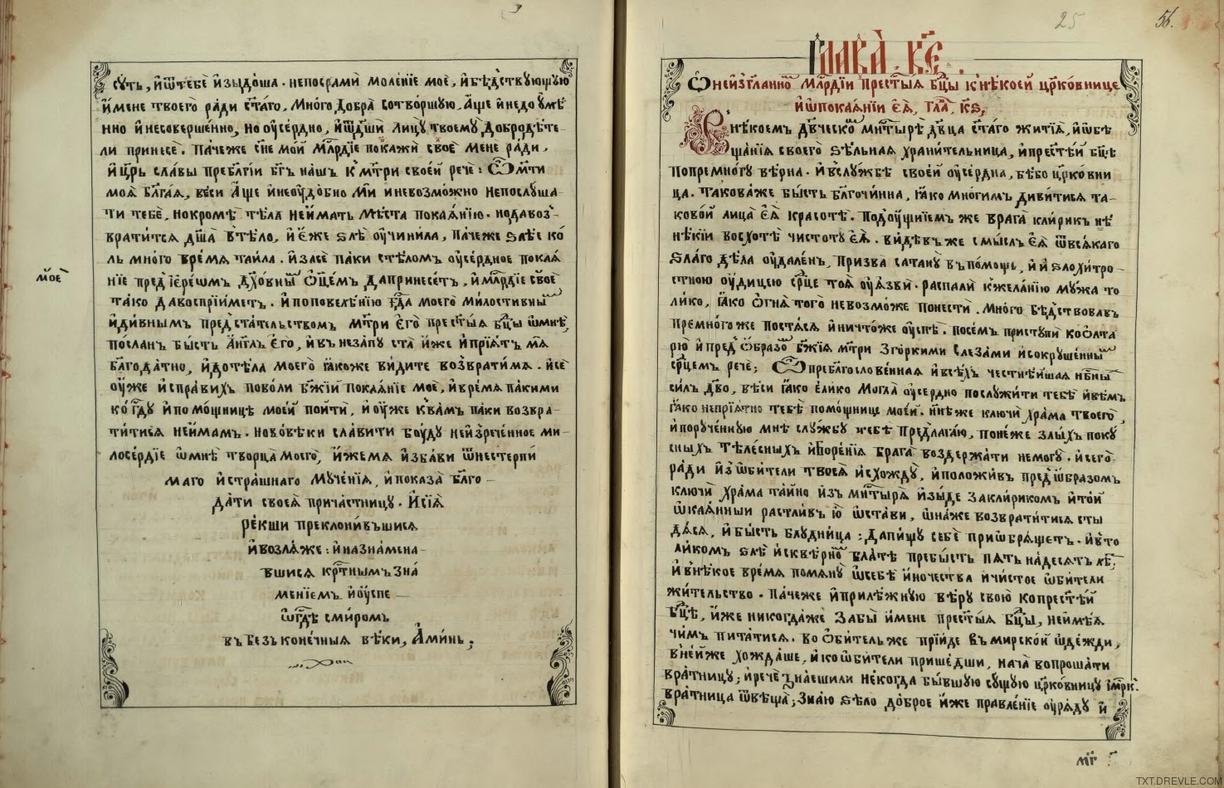 суть, и ѿ тебѐ изыдоша. непосрами моленіе мое, и бѣдствующую
имене твоего ради ст҃аго, много добра сотворшую, аще и недоумѣ
нно и несовершенно, но оусердно, и ѿдши лицу твоему добродѣте-
ли принесе. паче же сн҃е мой млр҃діе покажи свое мене ради,
и цр҃ь славы преблагіи бг҃ъ нашъ к мт҃ри своей рече: Ѽ мт҃и
моя блг҃ая, вси аще и неоудобно ми и невозможно непослуша
ти тебѐ, но кромѣ тѣла неимать мѣста покаянію. но да воз-
вратится дш҃а в тѣло, и еже злѣ оучинила, паче же злѣе ко
ль много время таила. и злѣе паки с тѣломъ оусердное покая
мое
ніе пред іереомъ духовны҆ оц҃емъ да принесетъ, и млр҃діе свое
тако да воспріиметъ. и по повелѣнію гд҃а моего милостивны҆
и дивнымъ предстательствомъ мт҃ри его прест҃ыя бц҃ы ѡ мнѣ,
посланъ бысть агг҃лъ его, и в незапу ста иже и пріятъ мя
благодатно, и до тѣла моего якоже видите возвратимя. и се
оуже исправихъ по воли бж҃іи покаяніе мое, и время паки ми
ко гд҃у и помощнице моей пойти, и оуже к вамъ паки возвра-
титися неимамъ. но во вѣки славити буду неизреченное ми-
лосердіе ѡ мнѣ творца моего, иже мя избави ѿ нестерпи
маго и страшнаго мученія, и показа блг҃о-
дати своея причастницу. и сія
рекши преклонивъшися
и возляже: и назнамена-
вшися крт҃нымъ зна
меніемъ, и оуспе —
ѡ гд҃ѣ с миромъ
въ безъконечныя вѣки, Аминь;
25
56.
Глава к҃е.
Ѽ неизгланно҆ млр҃дїи прест҃ыя бц҃ы к нѣкоей цр҃ковнице
и ѡ покаяніи ея, гла҃ к҃ѕ,
В нѣкоемъ дв҃ческо҆ мнт҃ырѣ дв҃ца ст҃аго житія, и ѡбѣ
щанія своего ѕѣльная хранительница, и прест҃ѣй бц҃ѣ
по премногу вѣрна. и в службѣ своей оусердна, бѣ бо цр҃ковни
ца. такова же бысть благочинна, яко многимъ дивитися та-
ковой лица ея красотѣ. подоущиіемъ же врага клирикъ нѣ
нѣкіи восхотѣ чистоту ея. видѣвъ же смыслъ ея ѿ всякаго
злаго дѣла оудаленъ, призва сатану в помощь, и и злохитро-
стною оудицею ср҃це тоя оуязви. распали к желанію мужа то
лико, яко огня того невозможе понести. много бѣдствовавъ
премного же постяся и ничтоже оуспѣ. посемъ приступи ко олта
рю и пред образо҆ бж҃ія мт҃ри з горкими слезами и сокрушенны҆
ср҃цемъ рече; Ѽ преблагословенная и всѣхъ честнѣйшая нб҃ны҆
силъ дв҃о, вѣси яко елико могла оусердно послужити тебѣ и вѣмъ
яко непріятно тебѣ помощнице моей. нн҃ѣ же ключи храма твоего,
и порученную мнѣ службу тебѣ предлагаю, понеже злыхъ поку
сныхъ тѣлесныхъ и боренія врага воздержати немогу. и сего
ради из обители твоея исхожду, и положивъ пред ѡбразомъ
ключи храма тайно изъ мнт҃ыря изыде за клирикомъ и той
ѡкаянныи растливъ ю ѡстави, она же возвратитися сты
дяся, и бысть блудница: да пищу себѣ приѡбрящетъ. и в то
ликомъ злѣ и сквернѣ҆ блатѣ пребысть пять надесять лѣ҆:
и в нѣкое время помяну ѡ себѣ иночества и чистое ѡбители
жительство. паче же и прилѣжную вѣру свою ко прест҃ѣй
бц҃ѣ, иже никогда же забы имене прест҃ыя бц҃ы, неимѣя
чимъ питатися. во обитель же пріиде въ мирской ѡдежди,
в ней же хождаше, и ко ѡбители пришедши, нача вопрошати
вратницу; и рече знаеши ли некогда бывшую сущую цр҃ковницу імр҃к:
вратница ѿвѣща; знаю зѣло доброе иже правленіе оуряду и
мг҃
TXT.DREVLE.COM